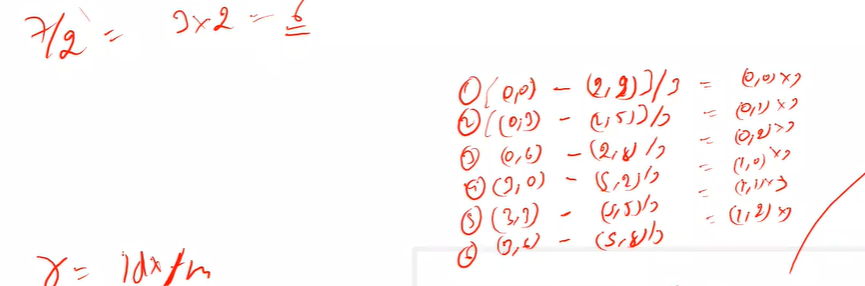 7/2 = 3x2 = 6
① (0,0) - (2,2)]/3 = (0,0)x3
② ((0,3) - (2,5)]/3 = (0,1)x3
③ (0,6) - (2,8)/3 = (0,2)x3
④ (3,0) - (5,2)/3 = (1,0)x3
⑤ (3,3) - (5,5)/3 = (1,1)x3
⑥ (3,6) - (5,8)/3 = (1,2)x3